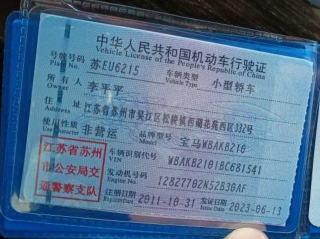 中华人民共和国机动车行驶证
Vehicle License of the People's Republic of China
号牌号码 苏EU6215 车辆类型 小型轿车
Plate No. Vehicle Type
所有人 李平平
Owner
住址 江苏省苏州市吴江区松陵镇西湖花苑西区332号
Address
使用性质 非营运 品牌型号 宝马WBAKB210
Use Character Model
江苏省苏州
市公安局交
通警察支队
车辆识别代号 WBAKB2101BC681541
VIN
发动机号码 12827702N52B30AF
Engine No.
注册日期 2011-10-31 发证日期 2023-06-13
Register Date Issue Date